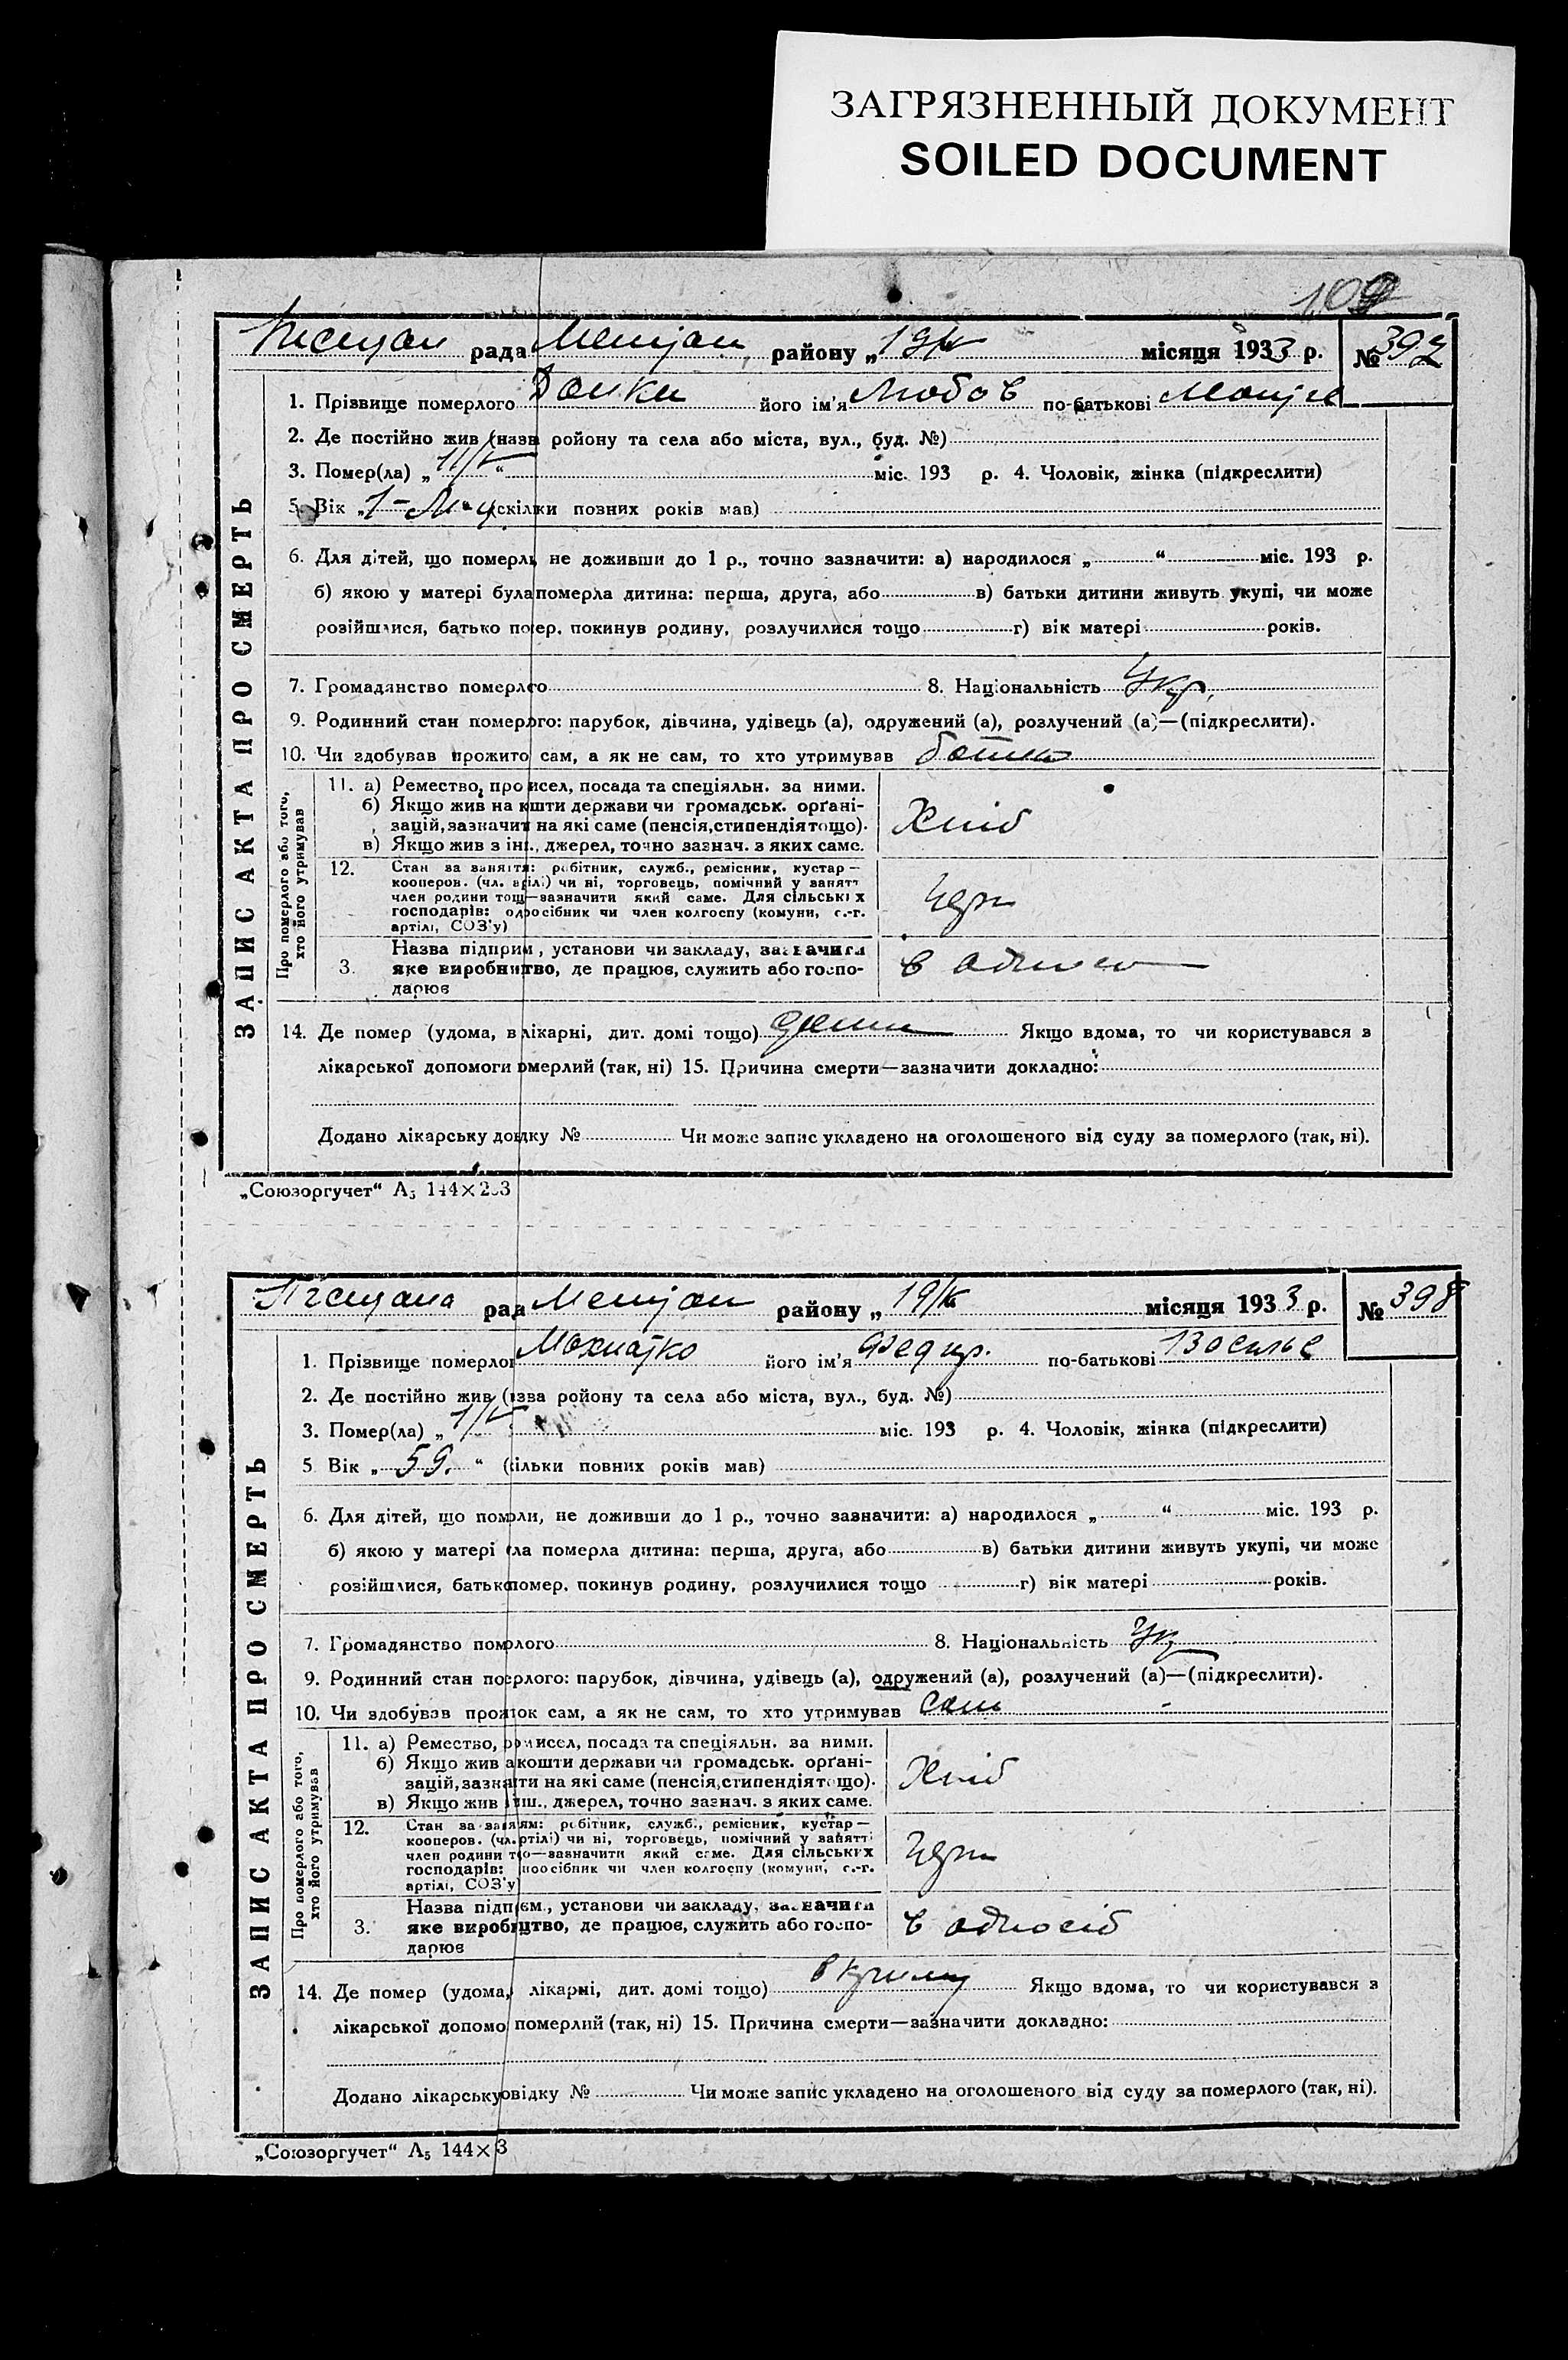 ЗАГРЯЗНЕННЫЙ ДОКУМЕНТ
SOILED DOCUMENT
109
рада району „19/ місяця 1933 р. № 397
1. Прізвище померлого його ім'я Любов по-батькові
2. Де постійно жив (назв ройону та села або міста, вул., буд. №)
3. Помер(ла) „11/V“ міс. 193 р. 4. Чоловік, жінка (підкреслити)
5. Вік „1- (скілки повних років мав)
6. Для дітей, що померл, не доживши до 1 р., точно зазначити: а) народилося „ “ міс. 193 р.
б) якою у матері була померла дитина: перша, друга, або в) батьки дитини живуть укупі, чи може
розійшлися, батько по ер. покинув родину, розлучилися тощо г) вік матері років.
7. Громадянство померлго 8. Національність Укр.
9. Родинний стан померлого: парубок, дівчина, удівець (а), одружений (а), розлучений (а)—(підкреслити).
10. Чи здобував прожито сам, а як не сам, то хто утримував батько
Про померлого або того, хто його утримував
11. а) Ремество, про исел, посада та спеціяльн. за ними.
б) Якщо жив на кшти держави чи громадськ. орґані-
зацій, зазначит на які саме (пенсія, стипендія тощо).
в) Якщо жив з інш., джерел, точно зазнач. з яких саме.
Хліб
12. Стан за заняття: робітник, служб., ремісник, кустар—
кооперов. (чл. аріл.) чи ні, торговець, помічний у занятт
член родини тощ—зазначити який саме. Для сільських
господарів: одосібник чи член колгоспу (комуни, с.-г.
артілі, СОЗ'у)
3. Назва підприм., установи чи закладу, зазначити
яке виробнитво, де працює, служить або госпо-
дарює
14. Де помер (удома, в лікарні, дит. домі тощо) дома Якщо вдома, то чи користувався з
лікарської допомоги омерлий (так, ні) 15. Причина смерти—зазначити докладно:
Додано лікарську довдку № Чи може запис укладено на оголошеного від суду за померлого (так, ні).
ЗАПИС АКТА ПРО СМЕРТЬ
„Союзоргучет“ А5 144×203
рада району „19/ місяця 1933 р. № 398
1. Прізвище померлог Мохнатко його ім'я Федир. по-батькові
2. Де постійно жив (зва ройону та села або міста, вул., буд. №)
3. Помер(ла) „1/V міс. 193 р. 4. Чоловік, жінка (підкреслити)
5 Вік „59.“ (ільки повних років мав)
6. Для дітей, що помрли, не доживши до 1 р., точно зазначити: а) народилося „ “ міс. 193 р.
б) якою у матері ла померла дитина: перша, друга, або в) батьки дитини живуть укупі, чи може
розійшлися, батько помер. покинув родину, розлучилися тощо г) вік матері років.
7. Громадянство помрлого 8. Національність Ук
9. Родинний стан поерлого: парубок, дівчина, удівець (а), одружений (а), розлучений (а)—(підкреслити).
10. Чи здобував прожток сам, а як не сам, то хто утримував сам
Про померлого або того, хто його утримував
11. а) Ремество, ромисел, посада та спеціяльн. за ними.
б) Якщо жив а кошти держави чи громадськ. орґані-
зацій, зазнати на які саме (пенсія, стипендія тощо).
в) Якщо жив інш., джерел, точно зазнач. з яких саме.
Хліб
12. Стан за заняям: робітник, служб., ремісник, кустар—
кооперов. (чл. ртілі) чи ні, торговець, помічний у занятті
член родини то—зазначити який саме. Для сільських
господарів: ноосібник чи член колгоспу (комуни, с.-г.
артілі, СОЗ'у
3. Назва підпрєм., установи чи закладу, зазначити
яке виробицтво, де працює, служить або госпо-
дарює
в односіб
14. Де помер (удома, лікарні, дит. домі тощо) Якщо вдома, то чи користувався з
лікарської допомо померлий (так, ні) 15. Причина смерти—зазначити докладно:
Додано лікарську овідку № Чи може запис укладено на оголошеного від суду за померлого (так, ні).
ЗАПИС АКТА ПРО СМЕРТЬ
„Союзоргучет“ А5 144×3